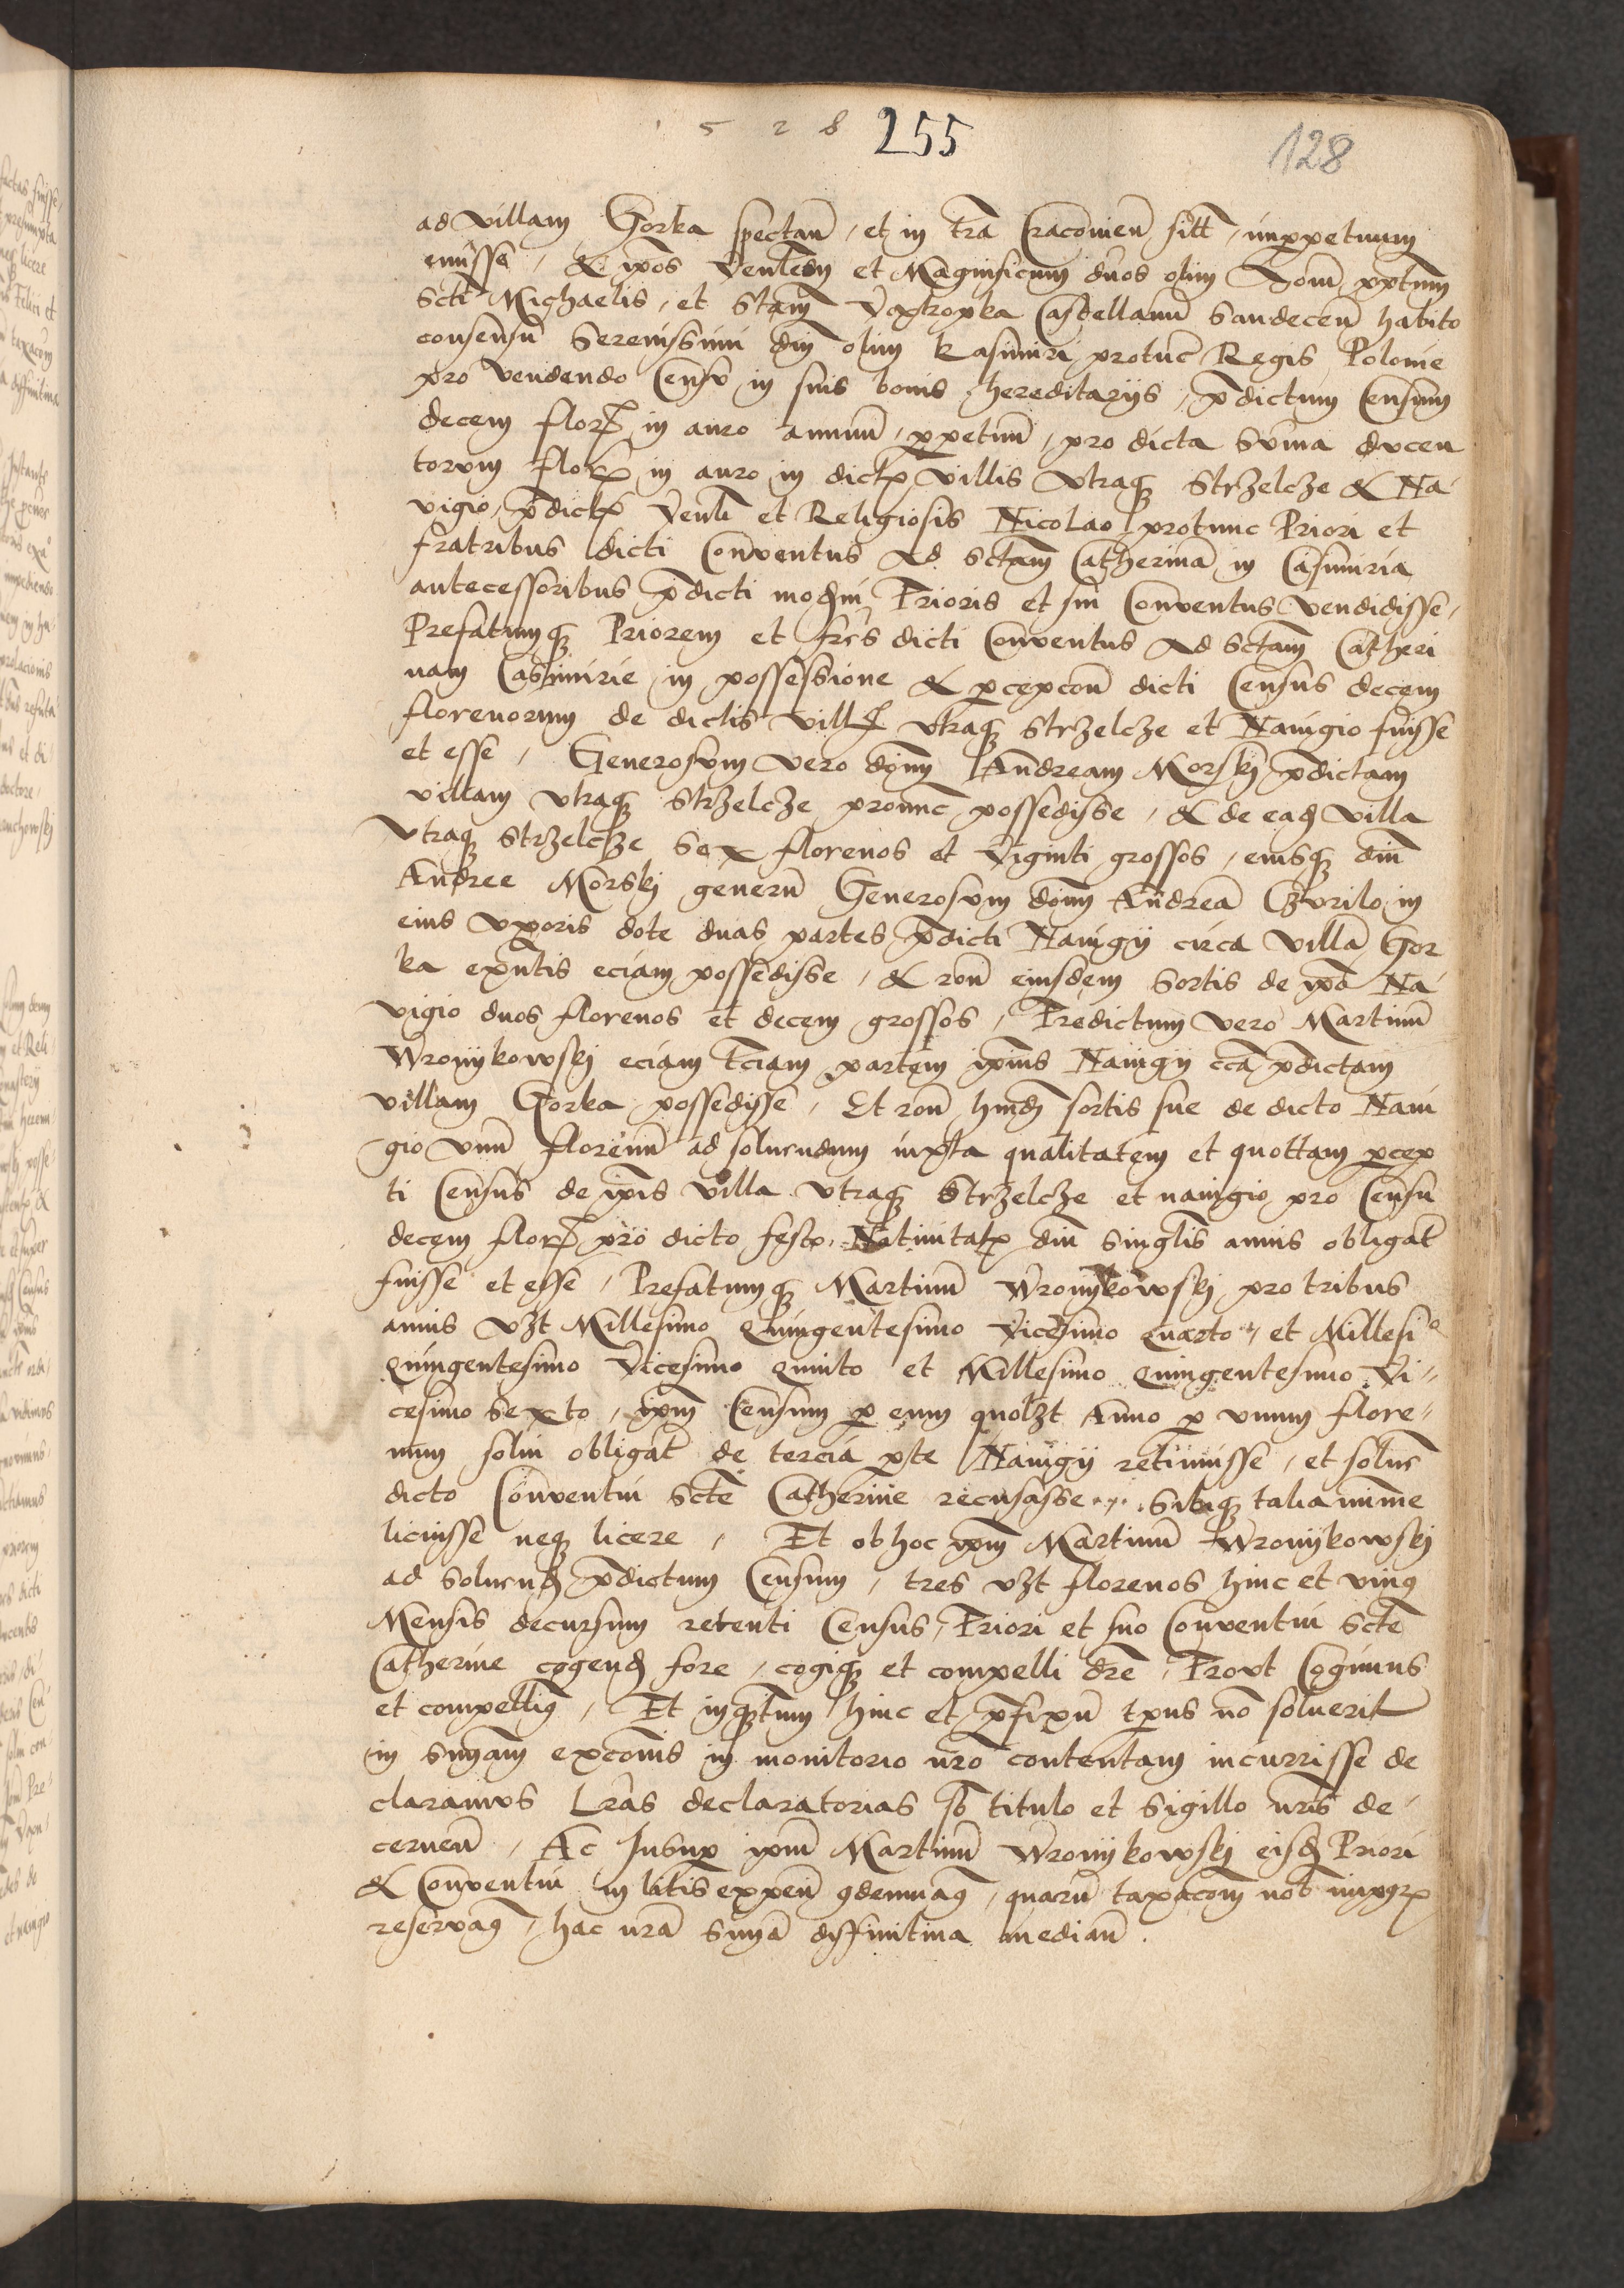 1 5 2 8 255 128
ad villam Gorka spectan̄ , et in tr̄a Cracovien̄ sitt̄ , imp̱petuum
emisse , & ip̄os Ven̄les et Magnificum dn̄os olim Joan̄ p̱p̱tum
Sct̄i Michaelis , et Stan̄ Voxtropka Castellanū Sandecen̄ habito
consensu Serenissimi dn̄i olim Kasimiri protunc Regis Polonie
pro vendendo Censu in suis bonis hereditarijs , p̄dictum Censum
decem florꝝ in auro annuū , p̱petuū , pro dicta Sum̄a ducen
torum florꝝ in auro in dictꝭ villis Utraqꝫ Strzelcze & Na-
vigio , p̄dictꝭ Ven̄li et Religiosis Nicolao protunc Priori et
fratribus dicti Conventus Ad Sctam̄ Catherinā in Casimiria
antecessoribus p̄dicti mod̄ni Prioris et sui Conventus vendidisse ,
Prefatumqꝫ Priorem et frēs dicti Conventus Ad Sctam̄ Catheri
nam Casimirie in possessione & p̱cepcōn̄ dicti Census decem
florenorum de dictis villꝭ utraqꝫ Strzelcze et Navigio fuisse
et esse , Generosum vero dōm̄ Andream Morskj p̄dictam
villam utraqꝫ Strzelcze pronunc possedisse , & de eadꝫ villa
Utraqꝫ Strzelcze Sex florenos et viginti grossos , eiusqꝫ dn̄i
Andree Morskj generū Generosum dōm̄ Andreā Czurilo in
eius uxoris dote duas partes p̄dicti Navigij circa villā Gor
ka exn̄tis eciam possedisse , & rōn̄ eiusdem Sortis de ip̄o Na-
vigio duos florenos et decem grossos , Predictum vero Martinū
Wronykowskj eciam tciam̄ partem ip̄ius Navigij cc̄a p̄dictam
villam Gorka possedisse , Et rōn̄ hm̄di sortis sue de dicto Navi
gio unū florenū ad solvendum iuxta qualitatem et quottam p̱cep
ti Census de ip̄is villa utraqꝫ Strzelcze et navigio pro Censu
decem florꝝ pro dicto festo Nativitatꝭ dn̄i Singlis̄ annis obligat̄
fuisse et esse , Prefatumqꝫ Martinū Wronykowskj pro tribus
annis vꝫt Millesimo Quingentesimo Vicesimo Quarto , et Millesiº
Quingentesimo Vicesimo Quinto et Millesimo Quingentesimo Vi-
cesimo Sexto , ip̄m Censum p̱ eum quolꝫt Anno p̱ unum flore-
num solvi obligat̄ de tercia p̱te Navigij retinuisse , et solver̄
dicto Conventui Sctē Catherine recusasse , Sibiqꝫ talia minīe
licuisse neqꝫ licere , Et ob hoc ip̄m Martinū Wronykowskj
ad solvendꝫ p̄dictum Censum , tres vꝫt florenos hinc et unius
Mensis decursum retenti Census , Priori et suo Conventui Sctē
Catherine cogendꝫ fore , cogiqꝫ et compelli dr̄e , Prout Cogimus
et compellimꝰ , Et inqꝫtum hinc et p̄fixū tp̄us nō solverit
in Sn̄iam excōis in monitorio nr̄o contentam incurrisse de
claramus Lr̄as declaratorias sb̄ titulo et Sigillo nr̄is de-
cernen̄ , Ac Insup̱ ip̄m Martinū Wronykowskj eisdꝫ Priori
& Conventui in litis expen̄ ꝯdemnamꝰ , quarū taxacōm̄ nob̄ impꝭ
reservamꝰ , hac nr̄a Sn̄ia diffinitiva median̄ .